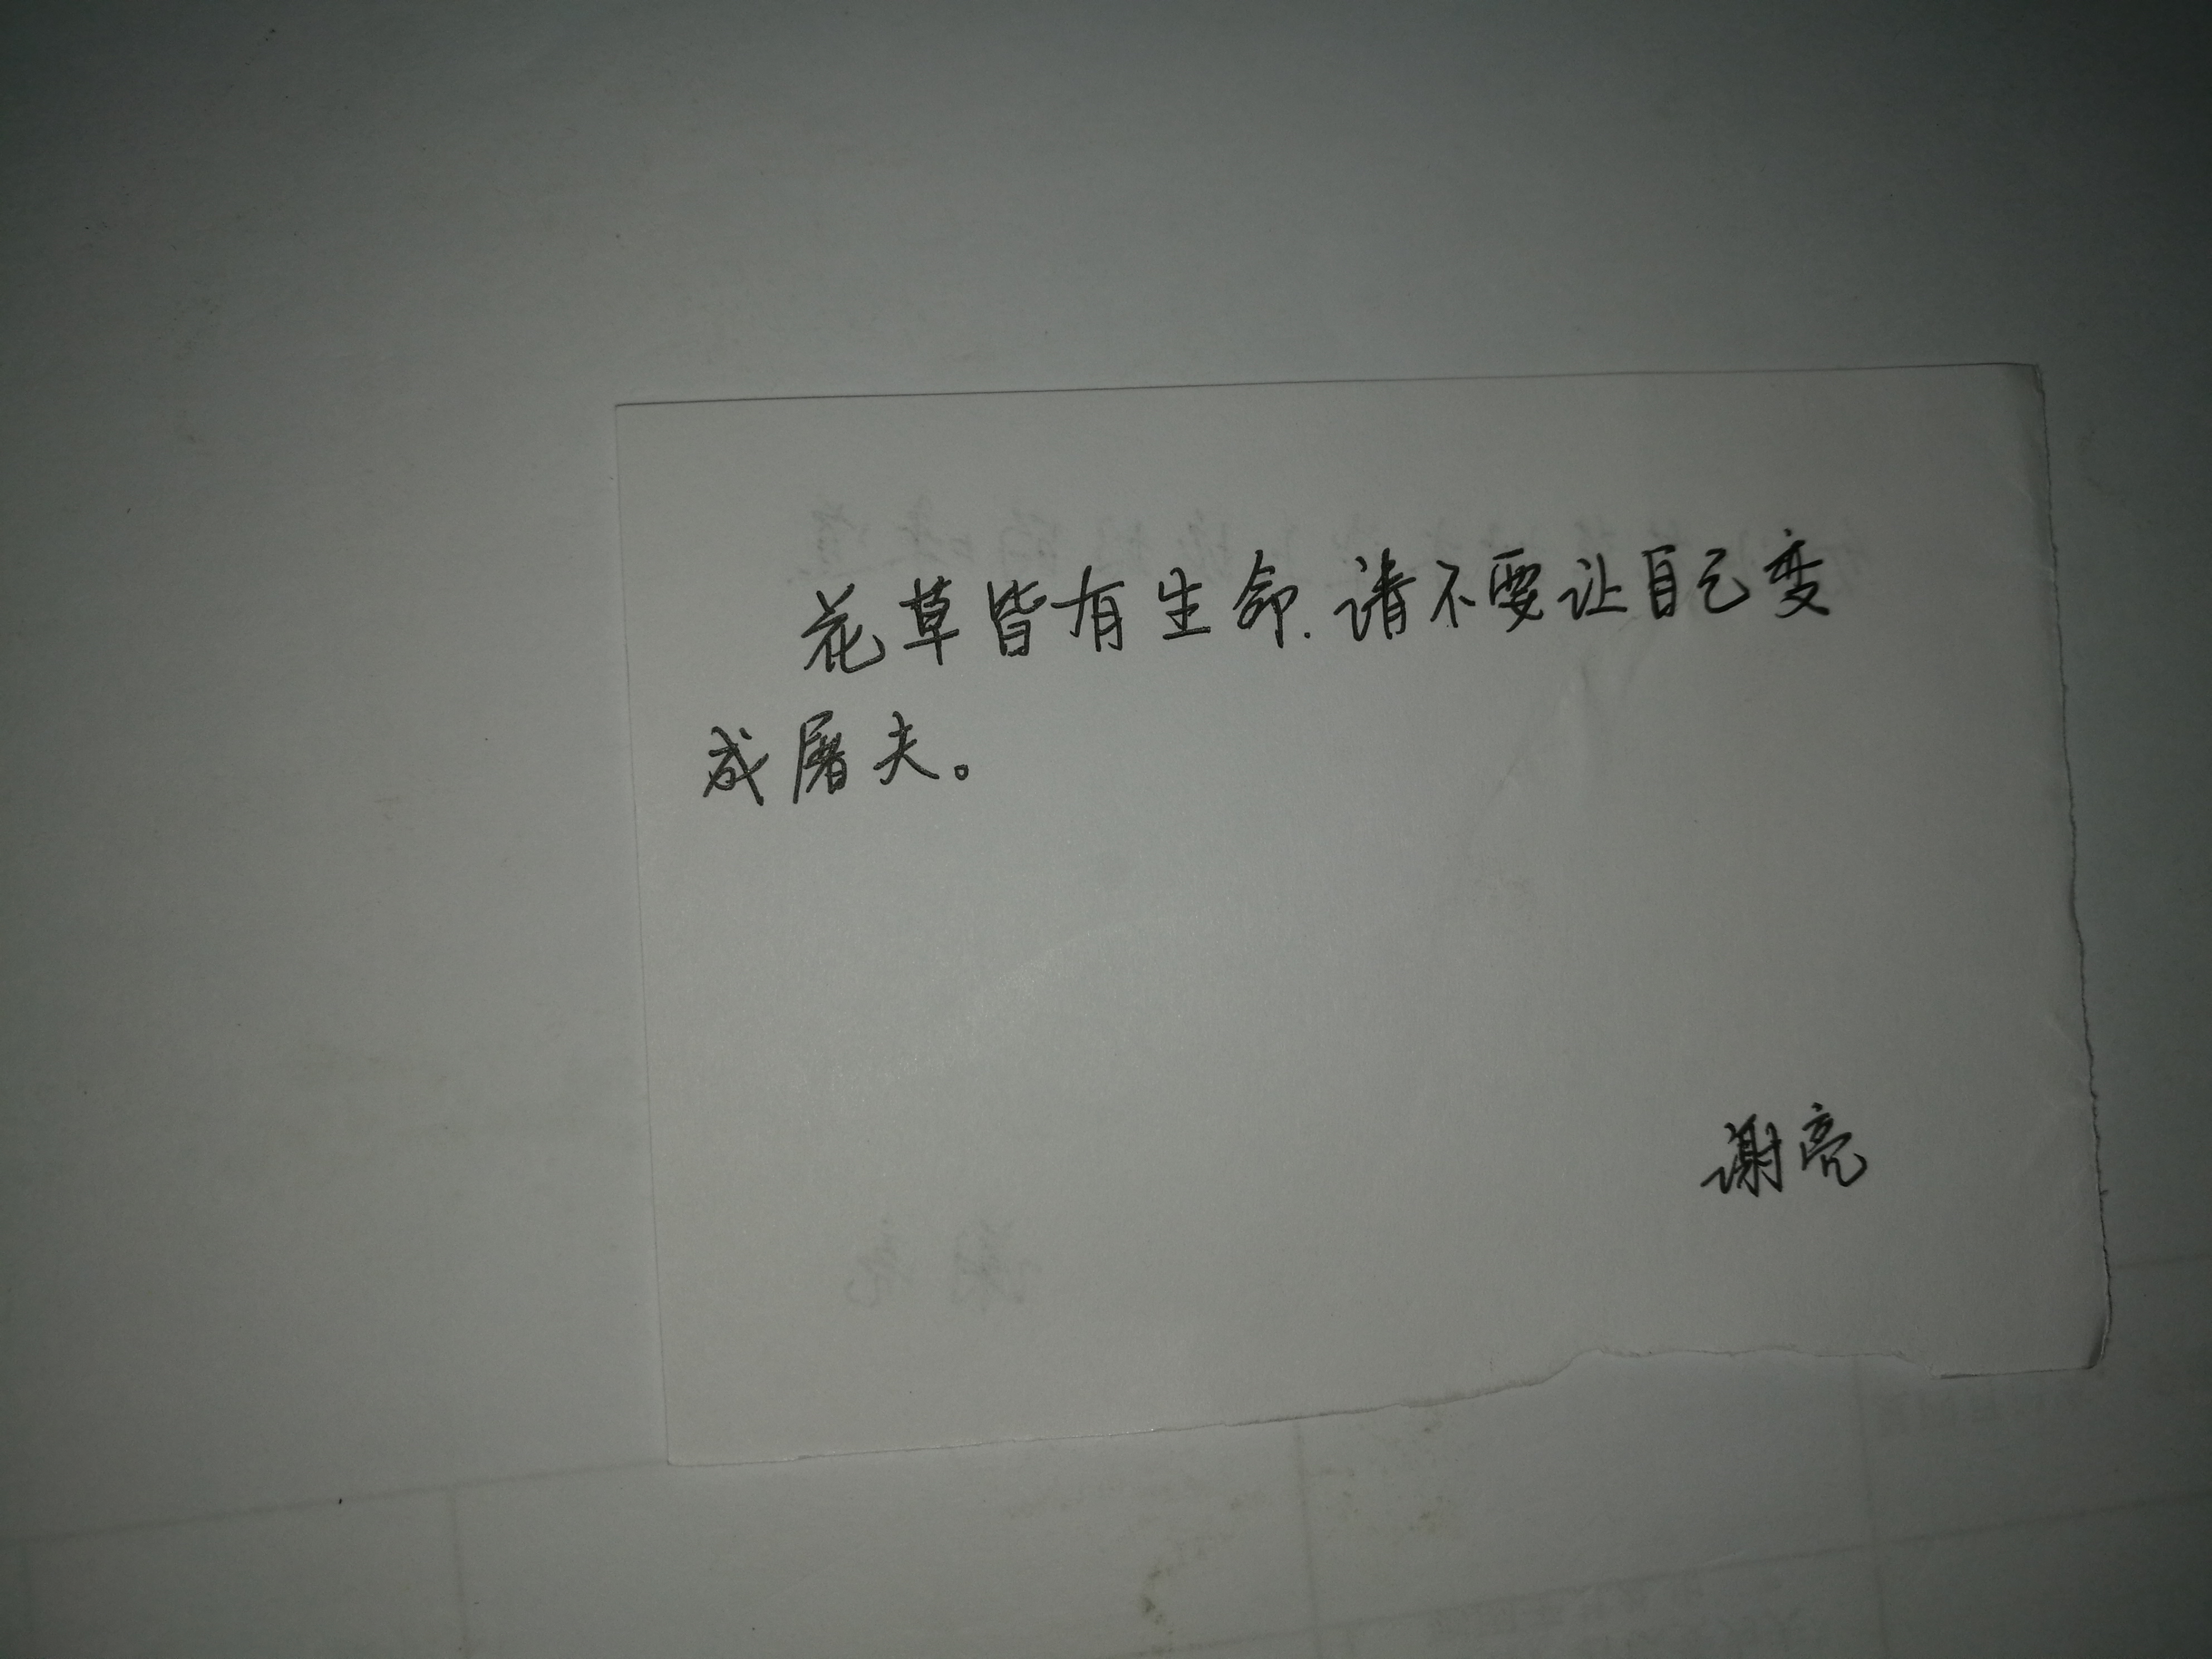 花草皆有生命.请不要让自己变
成屠夫。
谢亮